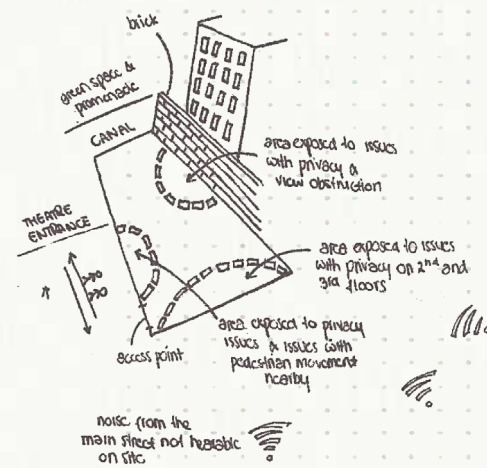 brick
green space &
promenade
CANAL
area exposed to issues
with privacy &
view obstruction
THEATRE
ENTRANCE
area exposed to issues
with privacy on 2nd and
3rd floors
area exposed to privacy
issues & issues with
pedestrian movement
nearby
access point
noise from the
main street not hearable
on site